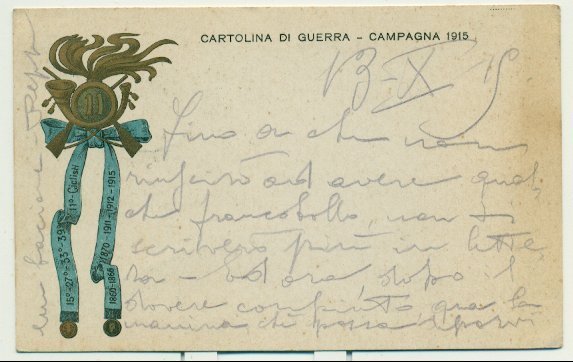 CARTOLINA DI GUERRA - CAMPAGNA 1915
13-X 15
11
Fino a che non
riuscirò ad avere qual
che francobollo, non
scriverò più in lette
ra - ed ora, dopo il
dovere compiuto
manina, che possa
un bacione
15°-27°-33°-39°
11°-Ciclisti
1860-1866
1870-1911-1912-1915